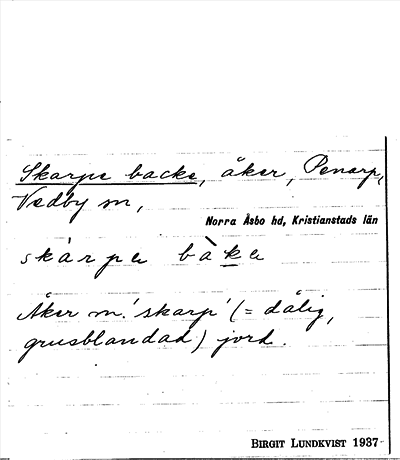 Skarpe backe, åker, Penarp,
Vedby sn,
Norra Åsbo hd, Kristianstads län
skàrpe bàke
Åker m. 'skarp' (= dålig,
grusblandad) jord.
BIRGIT LUNDKVIST 1937